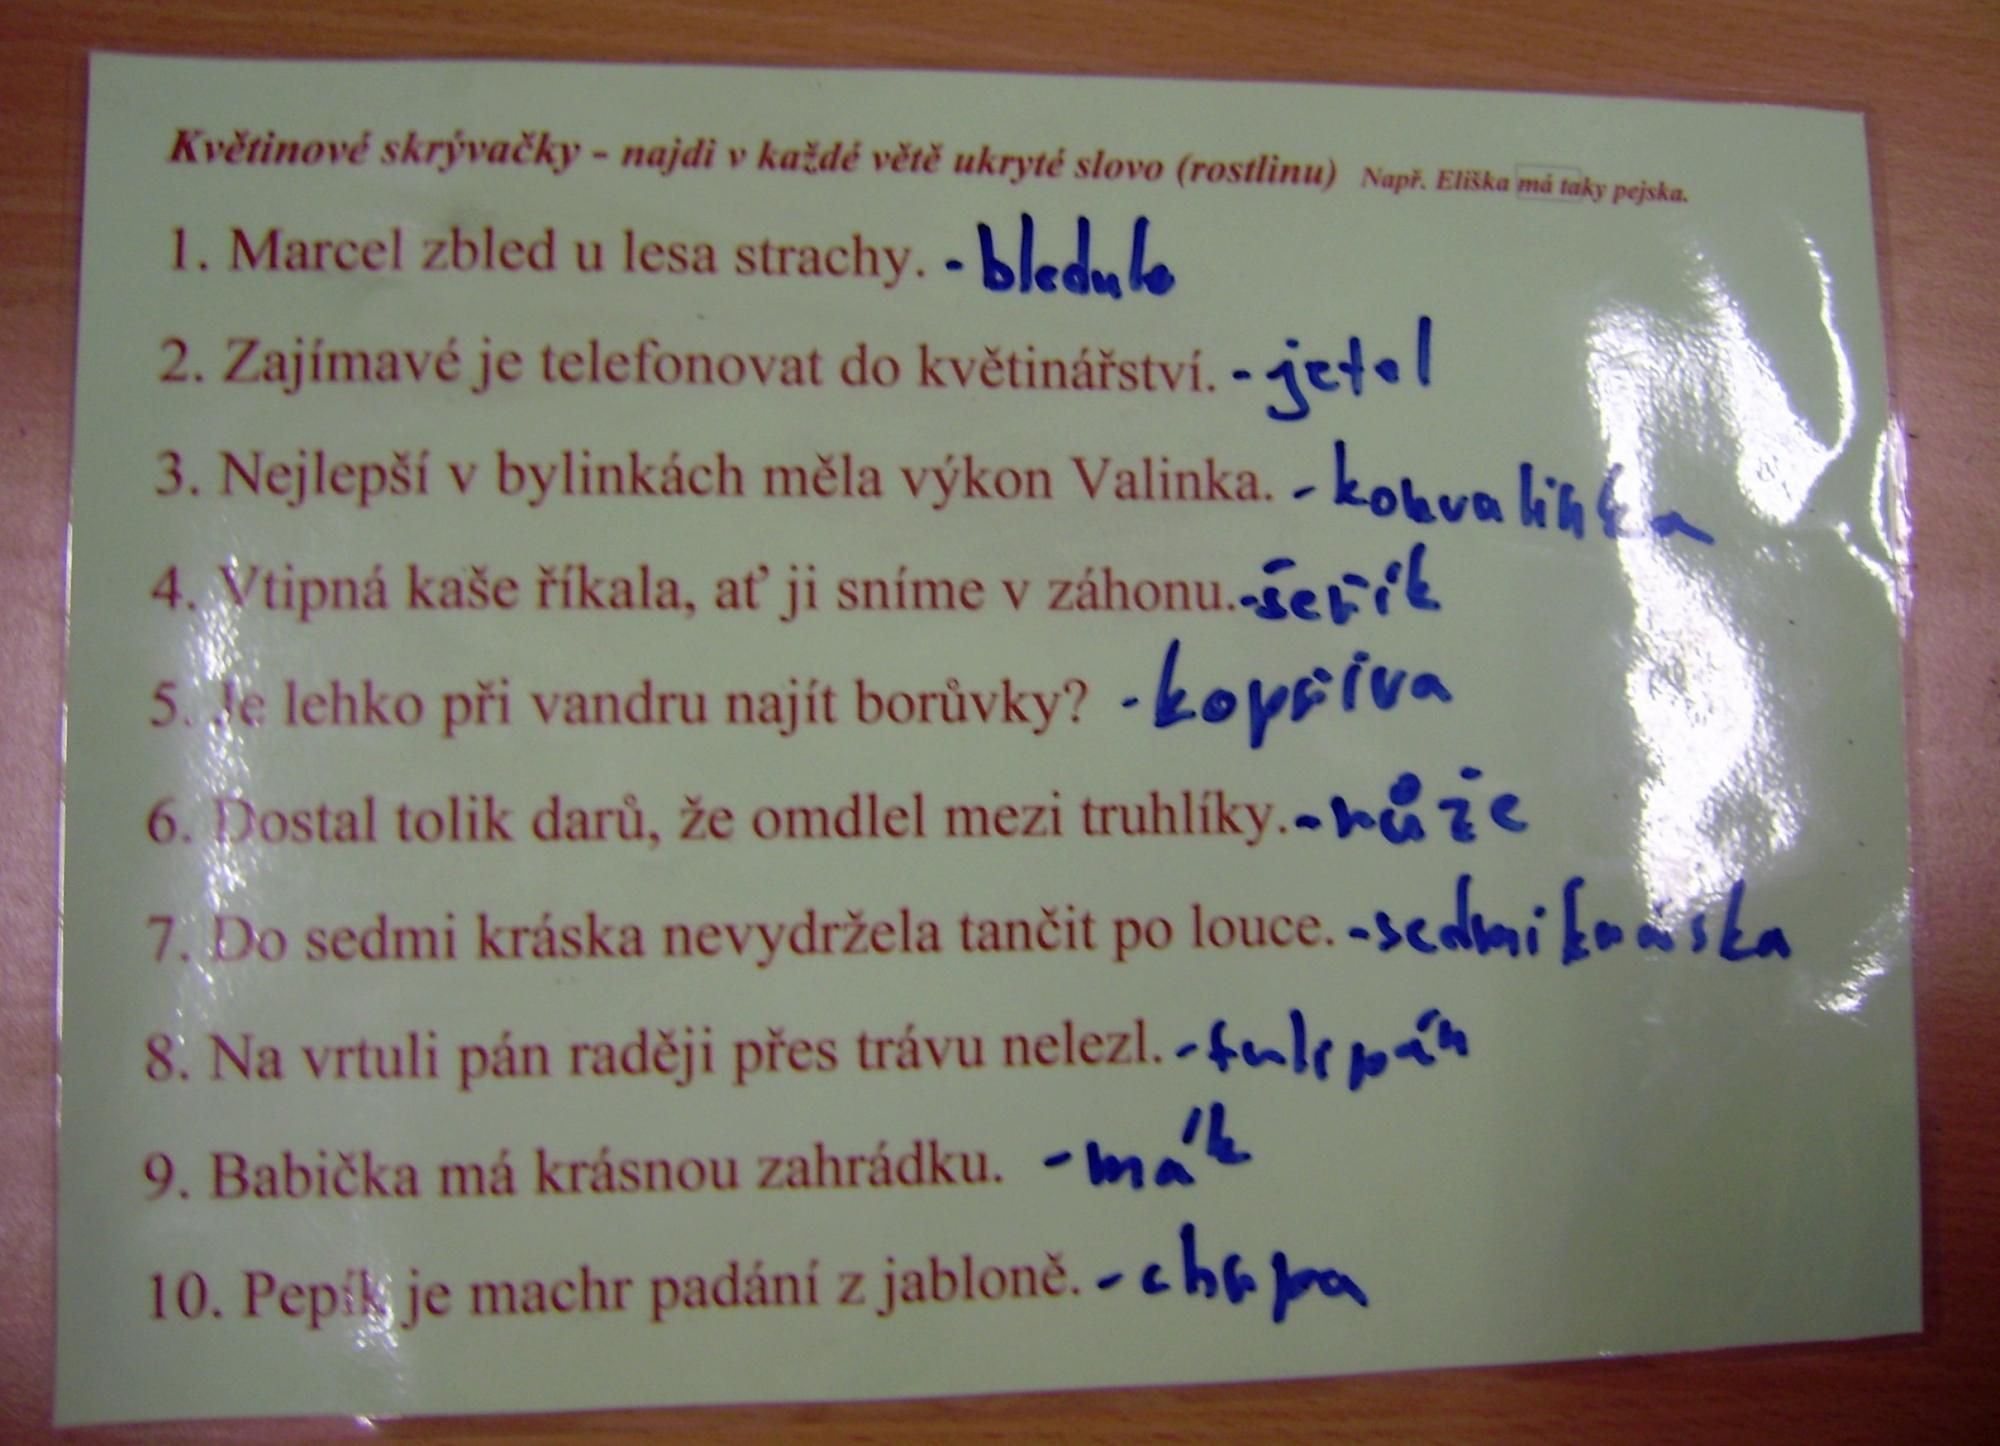 Květinové skrývačky - najdi v každé větě ukryté slovo (rostlinu) Např. Eliška má taky pejska.
1. Marcel zbled u lesa strachy. - bledule
2. Zajímavé je telefonovat do květinářství. - jetel
3. Nejlepší v bylinkách měla výkon Valinka. - konvalinka
4. Vtipná kaše říkala, ať ji sníme v záhonu. - šeřík
5. Je lehko při vandru najít borůvky? - kopřiva
6. Dostal tolik darů, že omdlel mezi truhlíky. - růže
7. Do sedmi kráska nevydržela tančit po louce. - sedmikráska
8. Na vrtuli pán raději přes trávu nelezl. - tulipán
9. Babička má krásnou zahrádku. - mák
10. Pepík je machr padání z jabloně. - chrpa